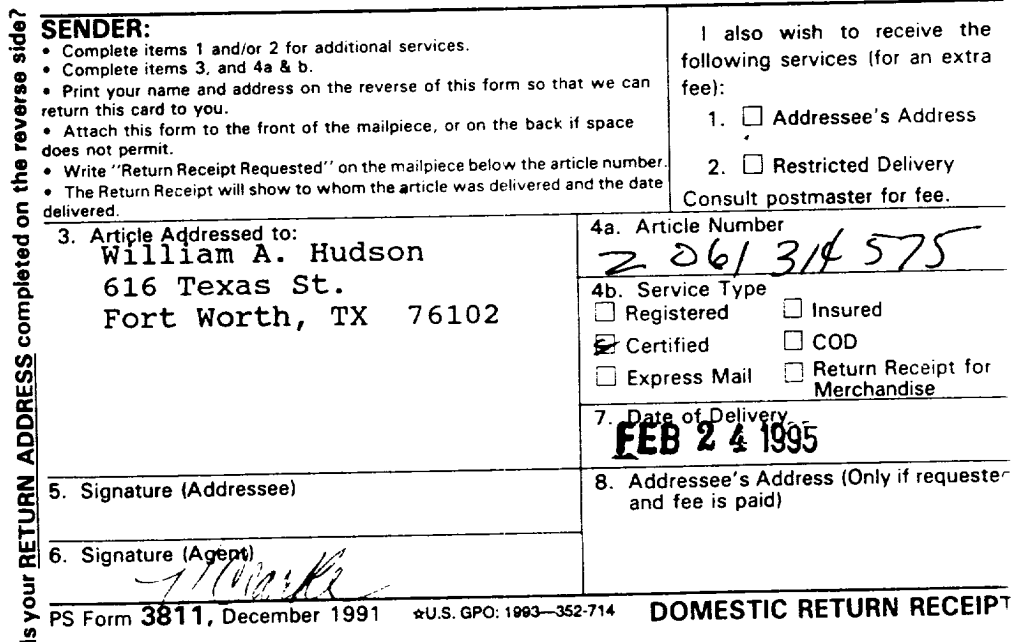 is your RETURN ADDRESS completed on the reverse side?
SENDER:
• Complete items 1 and/or 2 for additional services.
• Complete items 3, and 4a & b.
• Print your name and address on the reverse of this form so that we can
return this card to you.
• Attach this form to the front of the mailpiece, or on the back if space
does not permit.
• Write "Return Receipt Requested" on the mailpiece below the article number.
• The Return Receipt will show to whom the article was delivered and the date
delivered.
I also wish to receive the
following services (for an extra
fee):
1. ☐ Addressee's Address
2. ☐ Restricted Delivery
Consult postmaster for fee.
3. Article Addressed to:
William A. Hudson
616 Texas St.
Fort Worth, TX 76102
4a. Article Number
Z 061 314 575
4b. Service Type
☐ Registered ☐ Insured
☒ Certified ☐ COD
☐ Express Mail ☐ Return Receipt for
Merchandise
7. Date of Delivery
FEB 24 1995
5. Signature (Addressee)
8. Addressee's Address (Only if requeste
and fee is paid)
6. Signature (Agent)
PS Form 3811, December 1991 ☆U.S. GPO: 1993—352-714 DOMESTIC RETURN RECEIPT